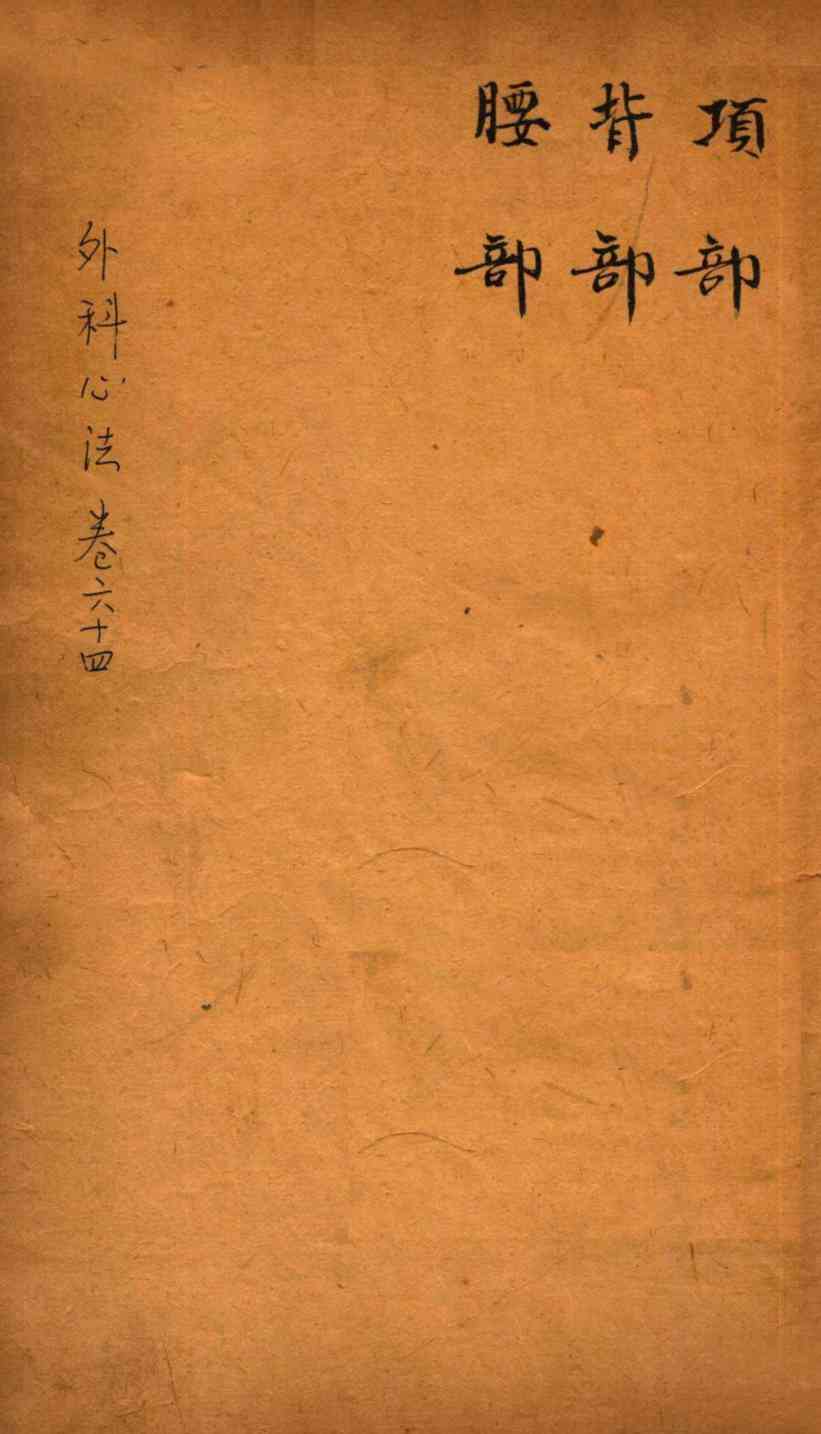 項部
背部
腰部
外科心法卷六十四